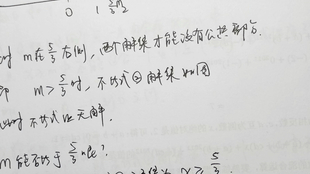 0 1 5/3 m
时 m在5/3右侧,两个解集才能没有公共部分.
即 m>5/3时,不等式②解集如图
此时不等式组无解.
m能否等于5/3呢?
x≥5/3